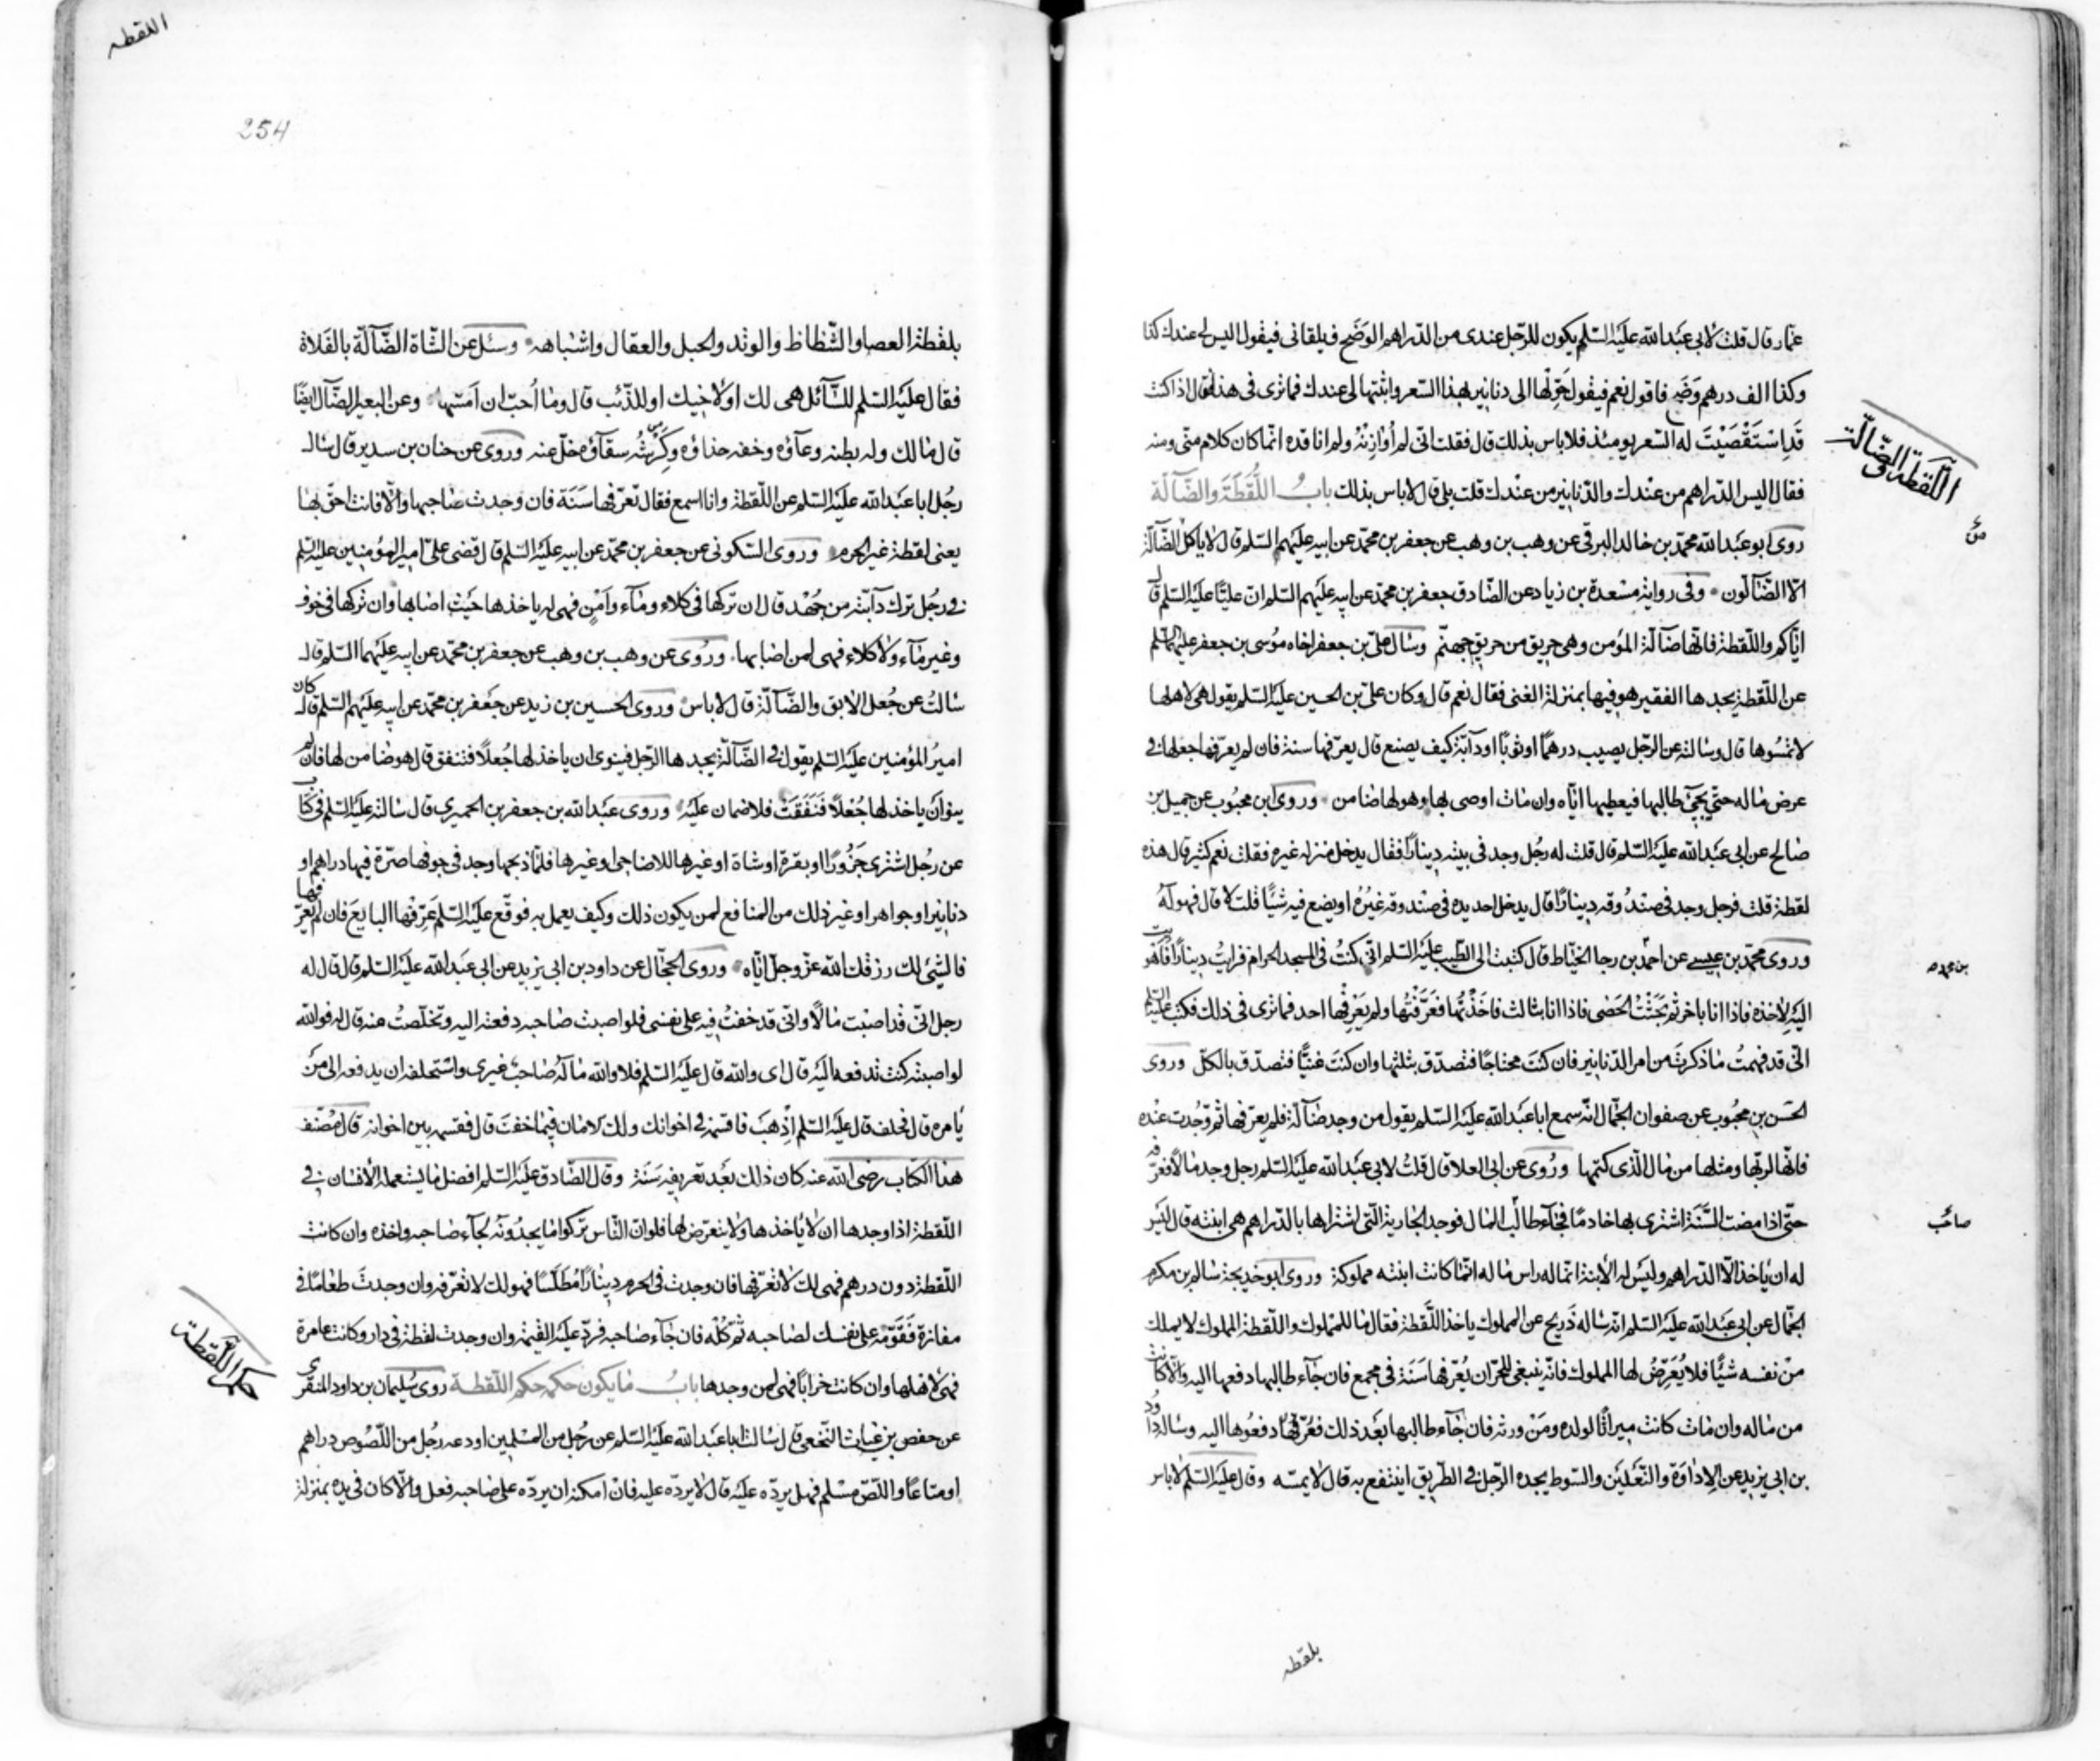 عمار قال قلت لابى عبد الله عليه السلم يكون للرجل عندى من الدراهم الوضح فيلقانى فيقول اليس لى عندك كذا
وكذا الف درهم وضح فاقول نعم فيقول حولها الى دنانير بهذا السعر واثبتها لى عندك فما ترى فى هذا قال اذا كنت
قد استقصيت له السعر يومئذ فلا باس بذلك قال فقلت انى لم أوازنه ولم اناقده انما كان كلام منى ومنه
فقال اليس الدراهم من عندك والدنانير من عندك قلت بلى قال لا باس بذلك باب اللقطة والضآلة
اللقطة والضالة
روى ابو عبد الله محمد بن خالد البرقى عن وهب بن وهب عن جعفر بن محمد عن ابيه عليهم السلم قال لا ياكل الضآلة
الا الضآلون وفى رواية مسعدة بن زياد عن الصادق جعفر بن محمد عن ابيه عليهم السلم ان عليا عليه السلم قال
اياكم واللقطة فانها ضآلة المؤمن وهى حريق من حريق جهنم وسال على بن جعفر اخاه موسى بن جعفر عليهما السلم
عن اللقطة يجدها الفقير هو فيها بمنزلة الغنى فقال نعم قال وكان على بن الحسين عليه السلم يقول هى لاهلها
لا تمسوها قال وسالته عن الرجل يصيب درهما او ثوبا او دآبة كيف يصنع قال يعرفها سنة فان لم يعرفها جعلها فى
عرض ماله حتى يجئ طالبها فيعطيها اياه وان مات اوصى بها وهو لها ضامن وروى ابن محبوب عن جميل بن
صالح عن ابى عبد الله عليه السلم قال قلت له رجل وجد فى بيته دينارا فقال يدخل منزله غيره فقلت نعم كثير قال هذه
لقطة قلت فرجل وجد فى صندوقه دينارا قال يدخل احد يده فى صندوقه غيره او يضع فيه شيئا قلت لا قال فهو له
وروى محمد بن عيسى عن احمد بن رجا الخياط قال كتبت الى الطيب عليه السلم انى كنت فى المسجد الحرام فرايت دينارا فاهويت
اليه لاخذه فاذا انا باخر ثم بحثت الحصى فاذا انا بثالث فاخذتها فعرفتها ولم يعرفها احد فما ترى فى ذلك فكتب عليه السلم
انى قد فهمت ما ذكرت من امر الدنانير فان كنت محتاجا فتصدق بثلثها وان كنت غنيا فتصدق بالكل وروى
الحسن بن محبوب عن صفوان الجمال انه سمع ابا عبد الله عليه السلم يقول من وجد ضآلة فلم يعرفها ثم وجدت عنده
فانها لربها ومثلها من مال الذى كتمها وروى عن ابى العلا قال قلت لابى عبد الله عليه السلم رجل وجد مالا فعرفه
حتى اذا مضت السنة اشترى بها خادما فجآء طالب المال فوجد الجارية التى اشتراها بالدراهم هى ابنته قال ليس
صاحب
له ان ياخذ الا الدراهم وليس له الابنة انما له راس ماله انما كانت ابنته مملوكة وروى ابو خديجة سالم بن مكرم
الجمال عن ابى عبد الله عليه السلم انه ساله ذريح عن المملوك ياخذ اللقطة فقال ما للمملوك واللقطة المملوك لا يملك
من نفسه شيئا فلا يعرض لها المملوك فانه ينبغى للحر ان يعرفها سنة فى مجمع فان جآء طالبها دفعها اليه والا كانت
من ماله وان مات كانت ميراثا لولده ومن ورثه فان جآء طالبها بعد ذلك فعرفها دفعوها اليه وساله داود
بن ابى يزيد عن الاداوة والنعلين والسوط يجده الرجل فى الطريق اينتفع به قال لا يمسه وقال عليه السلم لا باس
بلقطه
اللقطه
254
بلقطة العصا والشظاظ والوتد والحبل والعقال واشباهه وسئل عن الشاة الضآلة بالفلاة
فقال عليه السلم للسآئل هى لك او لاخيك او للذئب قال وما أحب ان امسها وعن البعير الضآل ايضا
قال مالك وله بطنه وعآؤه وخفه حذاؤه وكرشه سقآؤه خل عنه وروى عن حنان بن سدير قال سال
رجل ابا عبد الله عليه السلم عن اللقطة وانا اسمع فقال تعرفها سنة فان وجدت صاحبها والا فانت احق بها
يعنى لقطة غير الحرم وروى السكونى عن جعفر بن محمد عن ابيه عليه السلم قال قضى على امير المؤمنين عليه السلم
فى رجل ترك دآبته من جهد قال ان تركها فى كلاء ومآء وأمن فهى له ياخذها حيث اصابها وان تركها فى خوف
وغير مآء ولا كلاء فهى لمن اصابها وروى عن وهب بن وهب عن جعفر بن محمد عن ابيه عليهما السلم قال
سالت عن جعل الابق والضآلة قال لا باس وروى الحسين بن زيد عن جعفر بن محمد عن ابيه عليهم السلم قال كان
امير المؤمنين عليه السلم يقول فى الضآلة يجدها الرجل فينوى ان ياخذ لها جعلا فتنفق قال هو ضامن لها فان لم
ينو ان ياخذ لها جعلا فنفقت فلا ضمان عليه وروى عبد الله بن جعفر بن الحميرى قال سالته عليه السلم فى كتاب
عن رجل اشترى جزورا او بقرة او شاة او غيرها للاضاحى او غيرها فلما ذبحها وجد فى جوفها صرة فيها دراهم او
دنانير او جواهر او غير ذلك من المنافع لمن يكون ذلك وكيف يعمل به فوقع عليه السلم عرفها البايع فان لم يعرفها
فالشئ لك رزقك الله عز وجل اياه وروى الحجال عن داود بن ابى يزيد عن ابى عبد الله عليه السلم قال قال له
رجل انى قد اصبت مالا وانى قد خفت فيه على نفسى فلو اصبت صاحبه دفعته اليه وتخلصت منه قال له فوالله
لو اصبته كنت تدفعه اليه قال اى والله قال عليه السلم فلا والله ماله صاحب غيرى واستحلفه ان يدفعه الى من
يأمره قال فحلف قال عليه السلم اذهب فاقسمه فى اخوانك ولك الامان فيما خفت قال فقسمه بين اخوانه قال مصنف
هذا الكتاب رضى الله عنه كان ذلك بعد تعريفه سنة وقال الصادق عليه السلم افضل ما يستعمله الانسان فى
اللقطة اذا وجدها ان لا ياخذها ولا يتعرض لها فلو ان الناس تركوا ما يجدونه لجآء صاحبه واخذه وان كانت
اللقطة دون درهم فهى لك لا تعرفها فان وجدت فى الحرم دينارا مطلسا فهو لك لا تعرفه وان وجدت طعاما فى
مفازة فقومه على نفسك لصاحبه ثم كله فان جآء صاحبه فرد عليه القيمة وان وجدت لقطة فى دار وكانت عامرة
فهى لاهلها وان كانت خرابا فهى لمن وجدها باب ما يكون حكمه حكم اللقطة روى سليمان بن داود المنقرى
حكم اللقطة
عن حفص بن غياث النخعى قال سالت ابا عبد الله عليه السلم عن رجل من المسلمين اودعه رجل من اللصوص دراهم
او متاعا واللص مسلم فهل يرده عليه قال لا يرده عليه فان امكنه ان يرده على صاحبه فعل والا كان فى يده بمنزلة